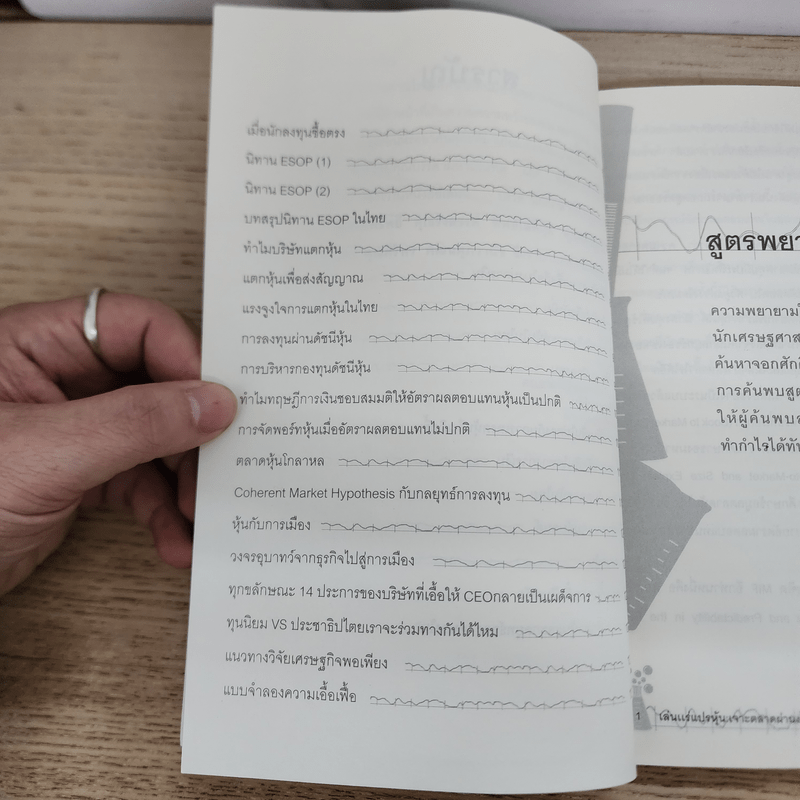 เมื่อนักลงทุนซื้อตรง
นิทาน ESOP (1)
นิทาน ESOP (2)
บทสรุปนิทาน ESOP ในไทย
ทำไมบริษัทแตกหุ้น
แตกหุ้นเพื่อส่งสัญญาณ
แรงจูงใจการแตกหุ้นในไทย
การลงทุนผ่านดัชนีหุ้น
การบริหารกองทุนดัชนีหุ้น
ทำไมทฤษฎีการเงินชอบสมมติให้อัตราผลตอบแทนหุ้นเป็นปกติ
การจัดพอร์ทหุ้นเมื่ออัตราผลตอบแทนไม่ปกติ
ตลาดหุ้นโกลาหล
Coherent Market Hypothesis กับกลยุทธ์การลงทุน
หุ้นกับการเมือง
วงจรอุบาทว์จากธุรกิจไปสู่การเมือง
ทุกขลักษณะ 14 ประการของบริษัทที่เอื้อให้ CEOกลายเป็นเผด็จการ
ทุนนิยม VS ประชาธิปไตยเราจะร่วมทางกันได้ไหม
แนวทางวิจัยเศรษฐกิจพอเพียง
แบบจำลองความเอื้อเฟื้อ
สูตรพยา
ความพยายาม
นักเศรษฐศาส
ค้นหาจอกศักดิ
การค้นพบสูต
ให้ผู้ค้นพบส
ทำกำไรได้ทัน
1 เล่นแร่แปรหุ้น